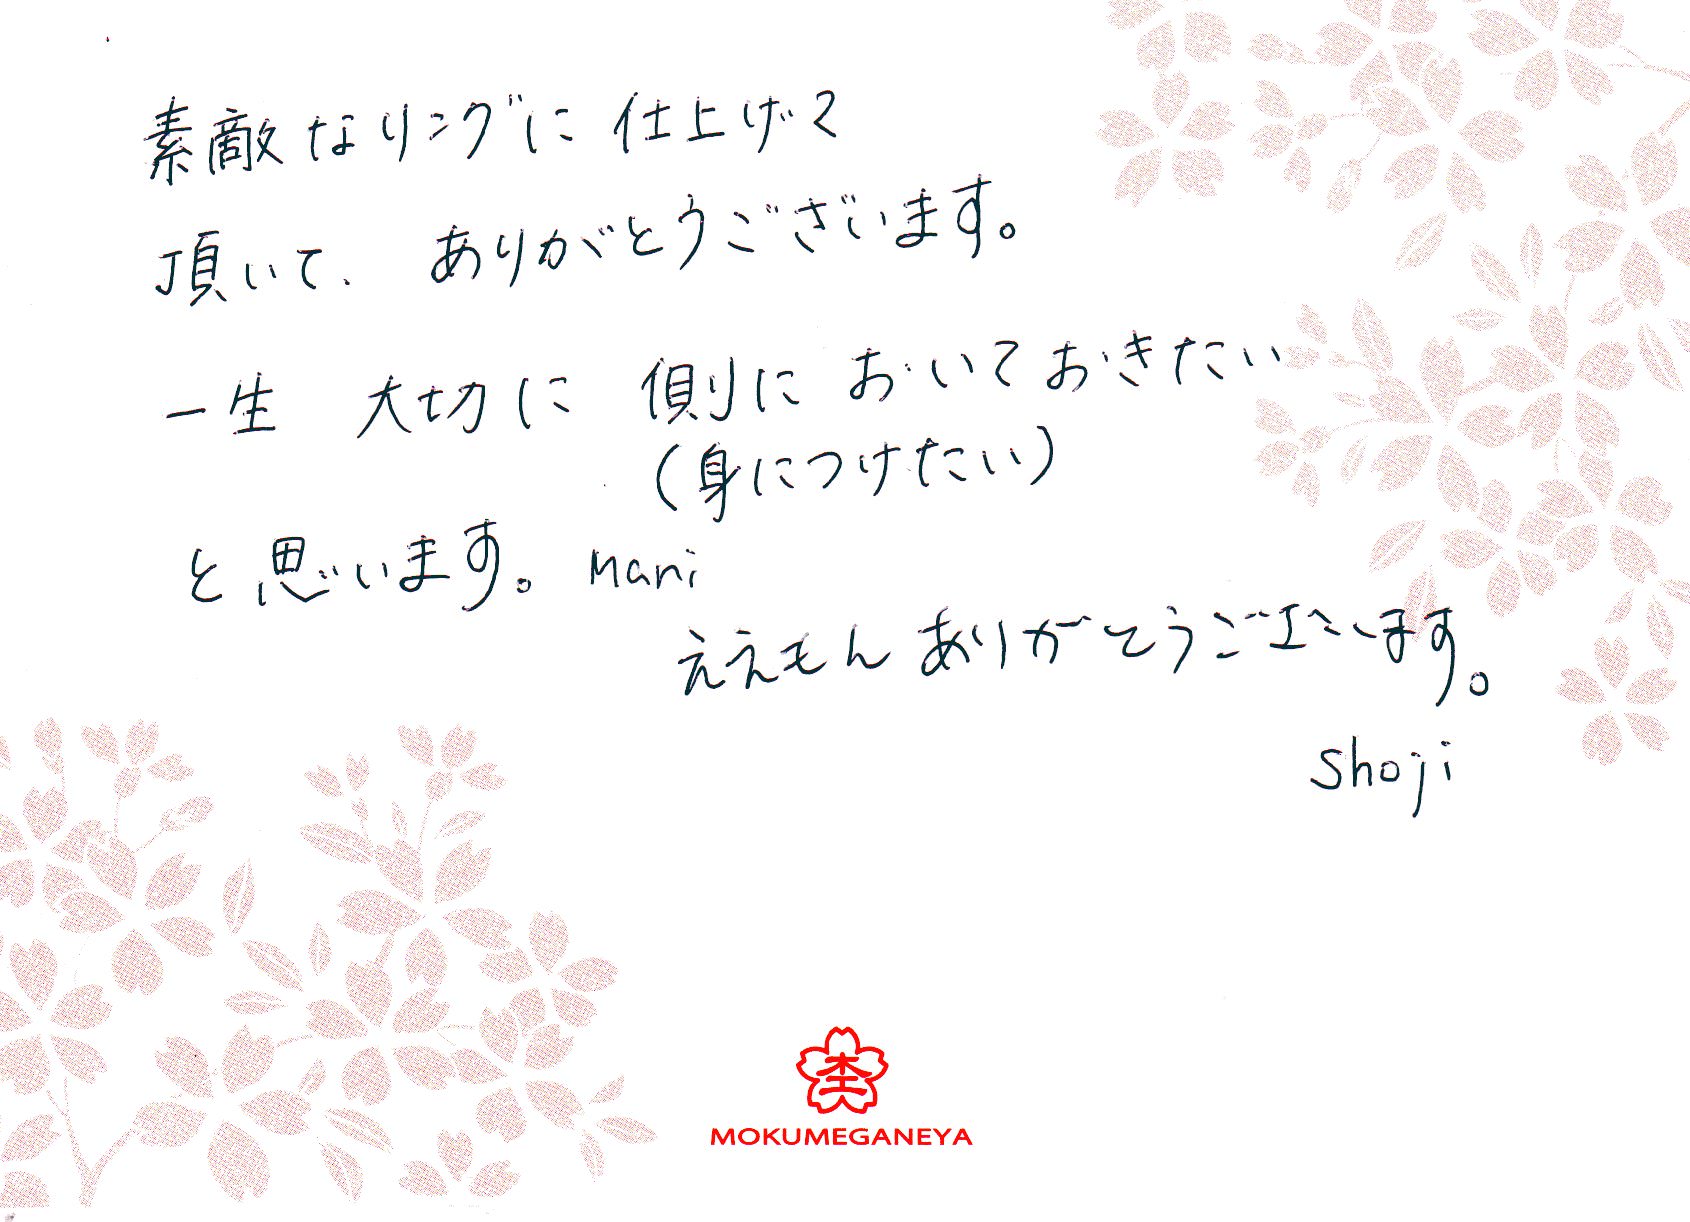 素敵なリングに仕上げて
頂いて、ありがとうございます。
一生 大切に 側に おいておきたい
(身につけたい)
と思います。 Mani
ええもんありがとうございます。
Shoji
MOKUMEGANEYA